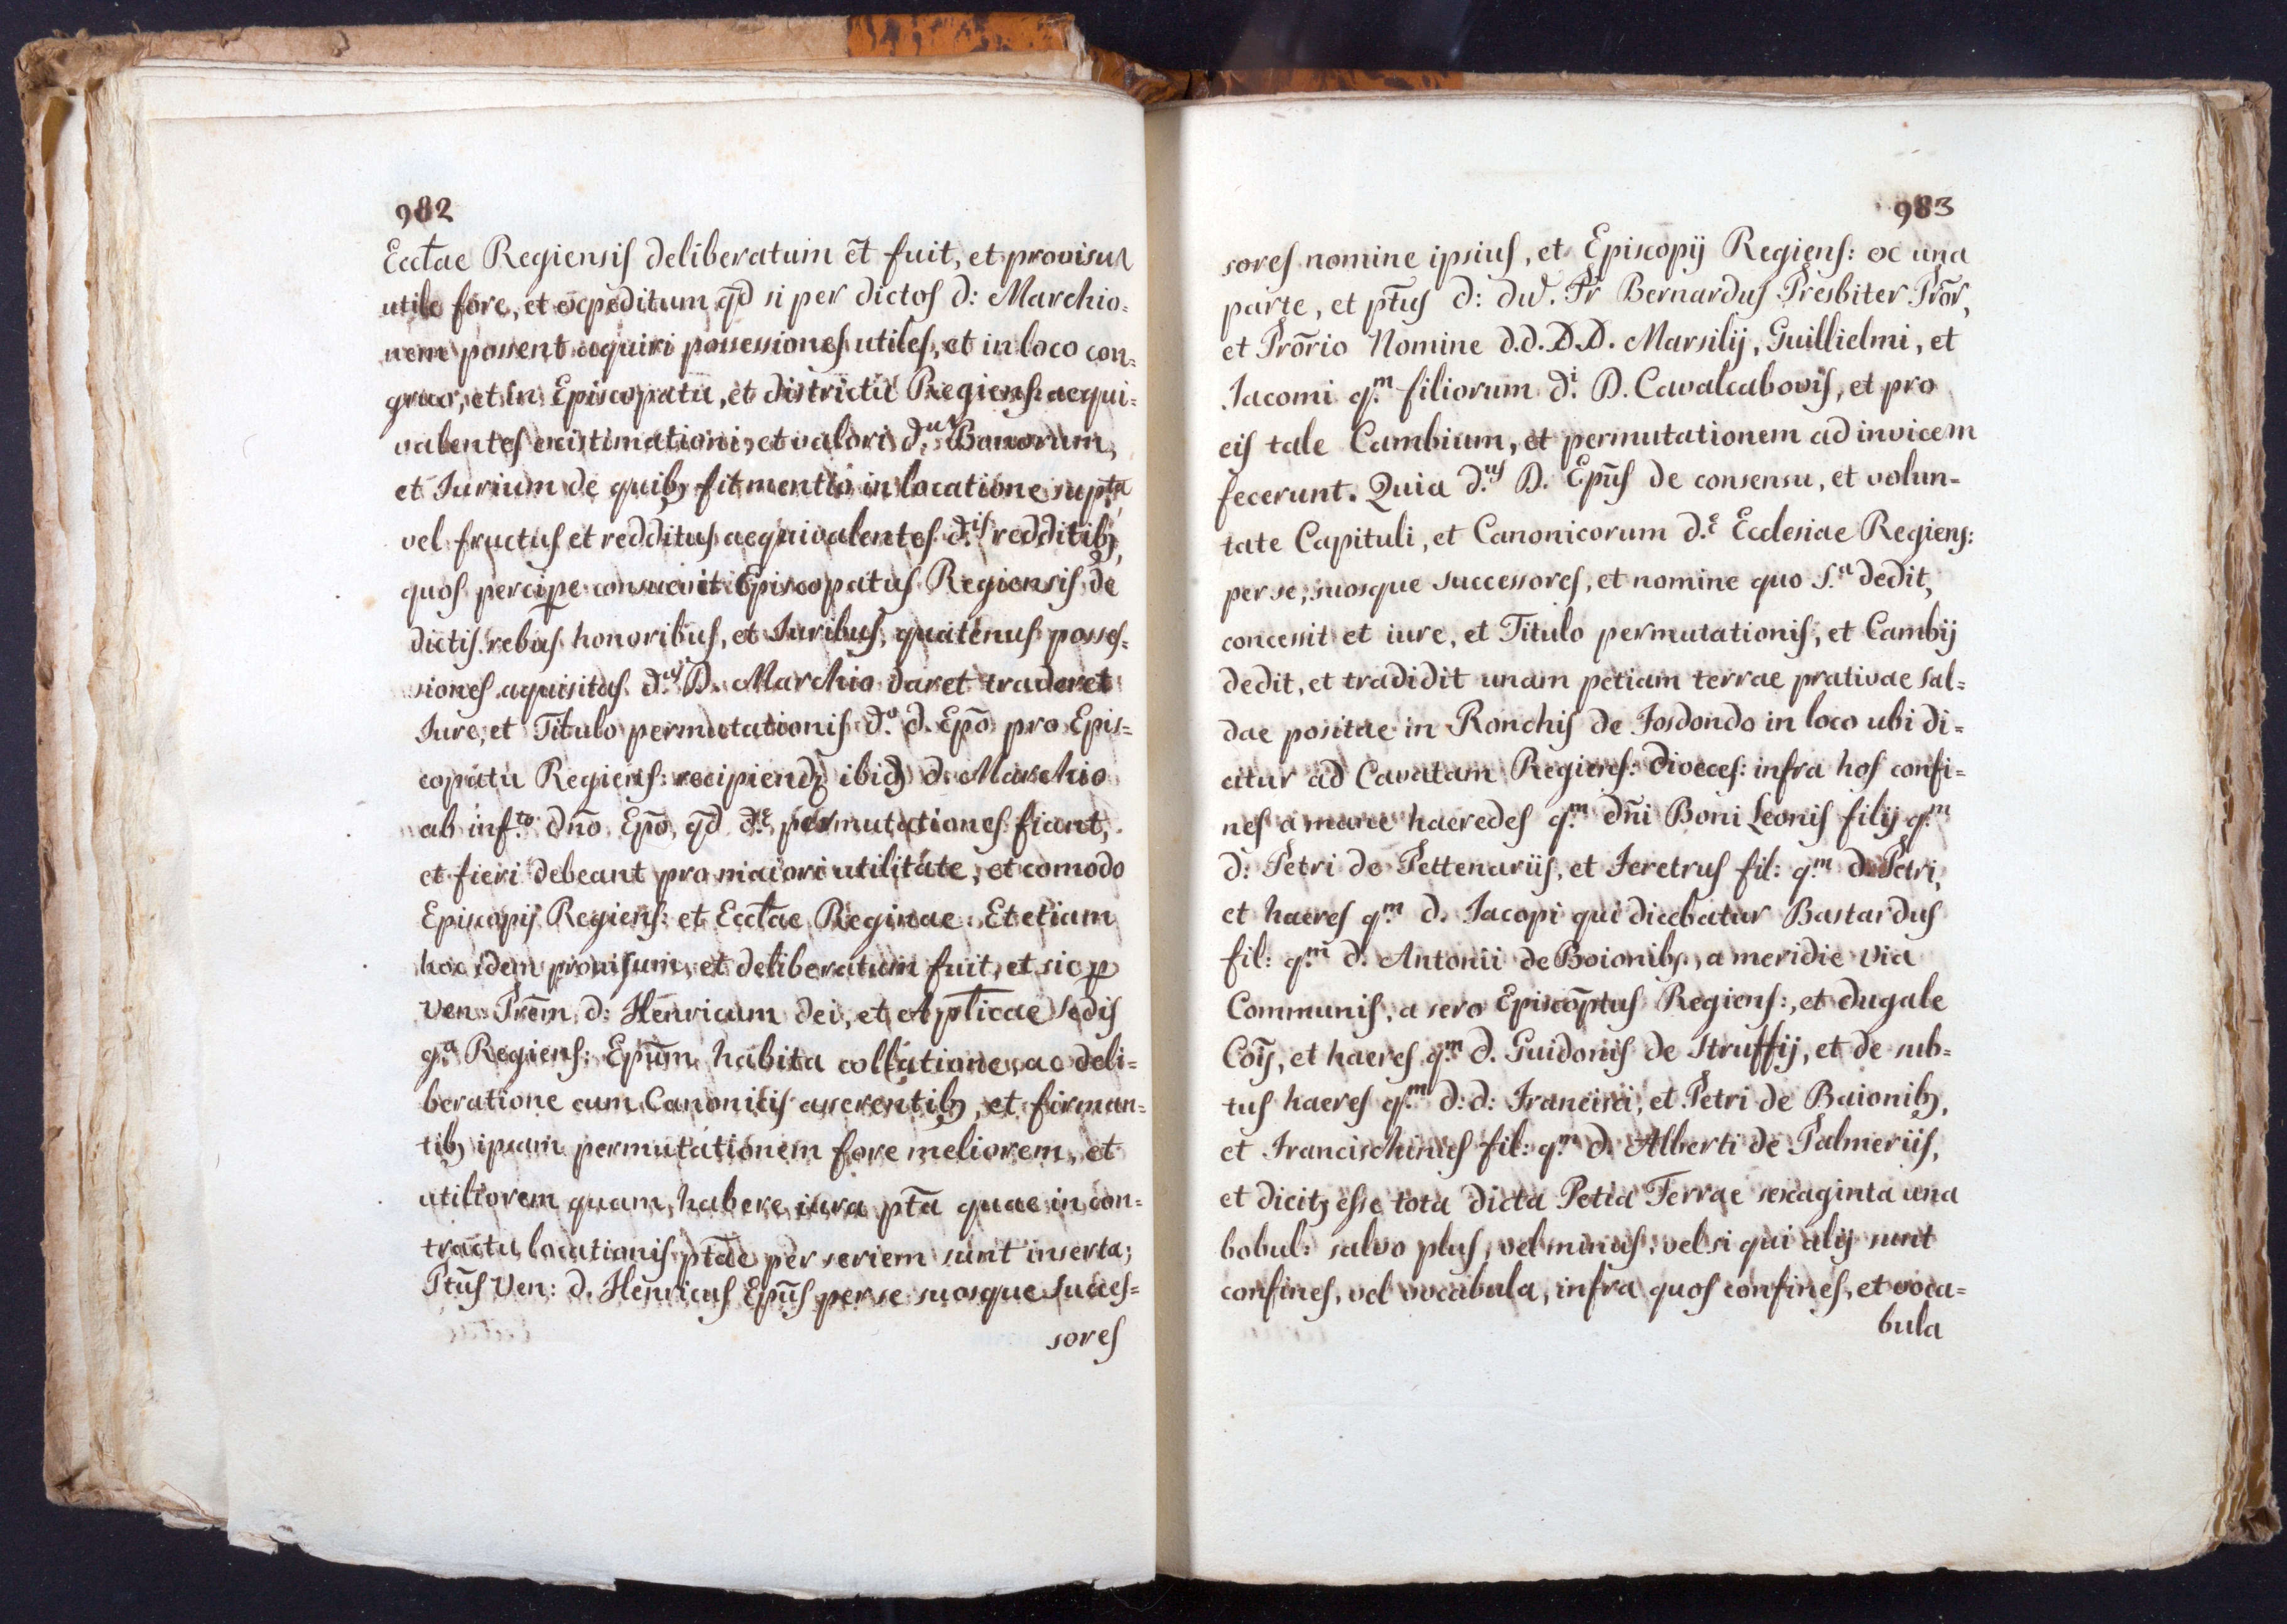 982
Ecctae Regiensis deliberatum et̄ fuit, et provisum
utile fore, et expeditum qd̄ si per dictos d: Marchio=
nem possent acquiri possessiones utiles, et in loco con=
gruo, et in Episcopatu, et districtu Regiens: aequi=
valentes existimationi, et valori d.ᵘ Bonorum,
et Iurium de quibȝ fit mentio in locatione supta,
vel fructus et redditus aequivalentes d.ⁱˢ redditibȝ,
quos percipe consuevit Episcopatus Regiensis de
dictis rebus honoribus, et Iuribus, quatenus posses=
siones aquisitas d.ᵘˢ D. Marchio daret traderet
Iure, et Titulo permutationis d.ᵒ d. Epō pro Epis=
copatu Regiens: recipiendȝ ibidȝ d. Marchio
ab inf.ᵗᵒ dn̄o Epō, qd̄ d.ᵉ permutationes fiant,
et fieri debeant pro maiori utilitate, et comodo
Episcopij Regiens: et Ecctae Reginae: Et etiam
hoc idem provisum, et deliberatum fuit, et sic p
Ven: Prēm d: Henricum dei, et Applicae Sedis
g.ᵃ Regiens: Epūm habita collatione, ac deli=
beratione cum Canonicis asserentibȝ, et firman=
tibȝ ipsam permutationem fore meliorem, et
utiliorem quam, habere iura ptā quae in con=
tractu locationis ptāe per seriem sunt inserta;
Ptūs Ven: d. Henricus Epūs per se suosque succes=
sores
983
sores nomine ipsius, et Episcopij Regiens: ex una
parte, et ptūs d: dud. Pr̄ Bernardus Presbiter Prōr,
et Prōrio Nomine d.d. D.D. Marsilij, Guillielmi, et
Iacomi q.ᵐ filiorum d.ⁱ D. Cavalcabovis, et pro
eis tale Cambium, et permutationem ad invicem
fecerunt. Quia d.ᵘˢ D. Epūs de consensu, et volun=
tate Capituli, et Canonicorum d.ᵉ Ecclesiae Regiens:
per se, suosque successores, et nomine quo s.ᵃ dedit,
concessit et iure, et Titulo permutationis, et Cambij
dedit, et tradidit unam petiam terrae prativae sal=
dae positae in Ronchis de Fosdondo in loco ubi di=
citur ad Cavatam Regiens: Dioeces: infra hos confi=
nes a mane haeredes q.ᵐ dn̄i Boni Leonis filij q.ᵐ
d: Petri de Pettenariis, et Feretrus fil: q.ᵐ d. Petri,
et haeres q.ᵐ d. Iacopi qui dicebatur Bastardus
fil: q.ᵐ d. Antonii de Boionibȝ, a meridie via
Communis, a sero Episcōptus Regiens:, et dugale
Coīs, et haeres q.ᵐ d. Guidonis de Struffij, et de sub=
tus haeres q.ᵐ d:d: Francisci, et Petri de Baionibȝ,
et Francischinus fil: q.ᵐ d. Alberti de Palmeriis,
et dicitȝ esse tota dicta Petia Terrae sexaginta una
bobul: salvo plus, vel minus, vel si qui alij sunt
confines, vel vocabula, infra quos confines, et voca=
bula